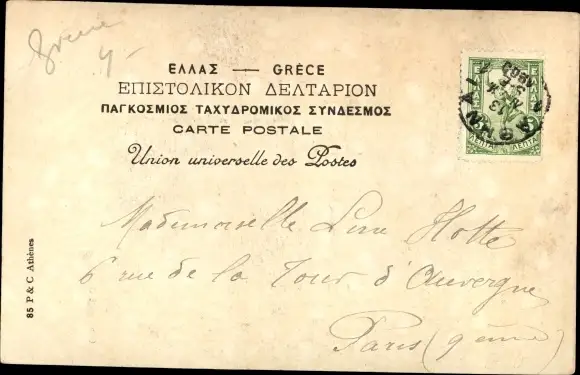 ΕΛΛΑΣ — GRÈCE
ΕΠΙΣΤΟΛΙΚΟΝ ΔΕΛΤΑΡΙΟΝ
ΠΑΓΚΟΣΜΙΟΣ ΤΑΧΥΔΡΟΜΙΚΟΣ ΣΥΝΔΕΣΜΟΣ
CARTE POSTALE
Union universelle des Postes
Mademoiselle Line Hotte
6 rue de la Tour d'Auvergne
Paris (9ème)
85 P & C Athènes